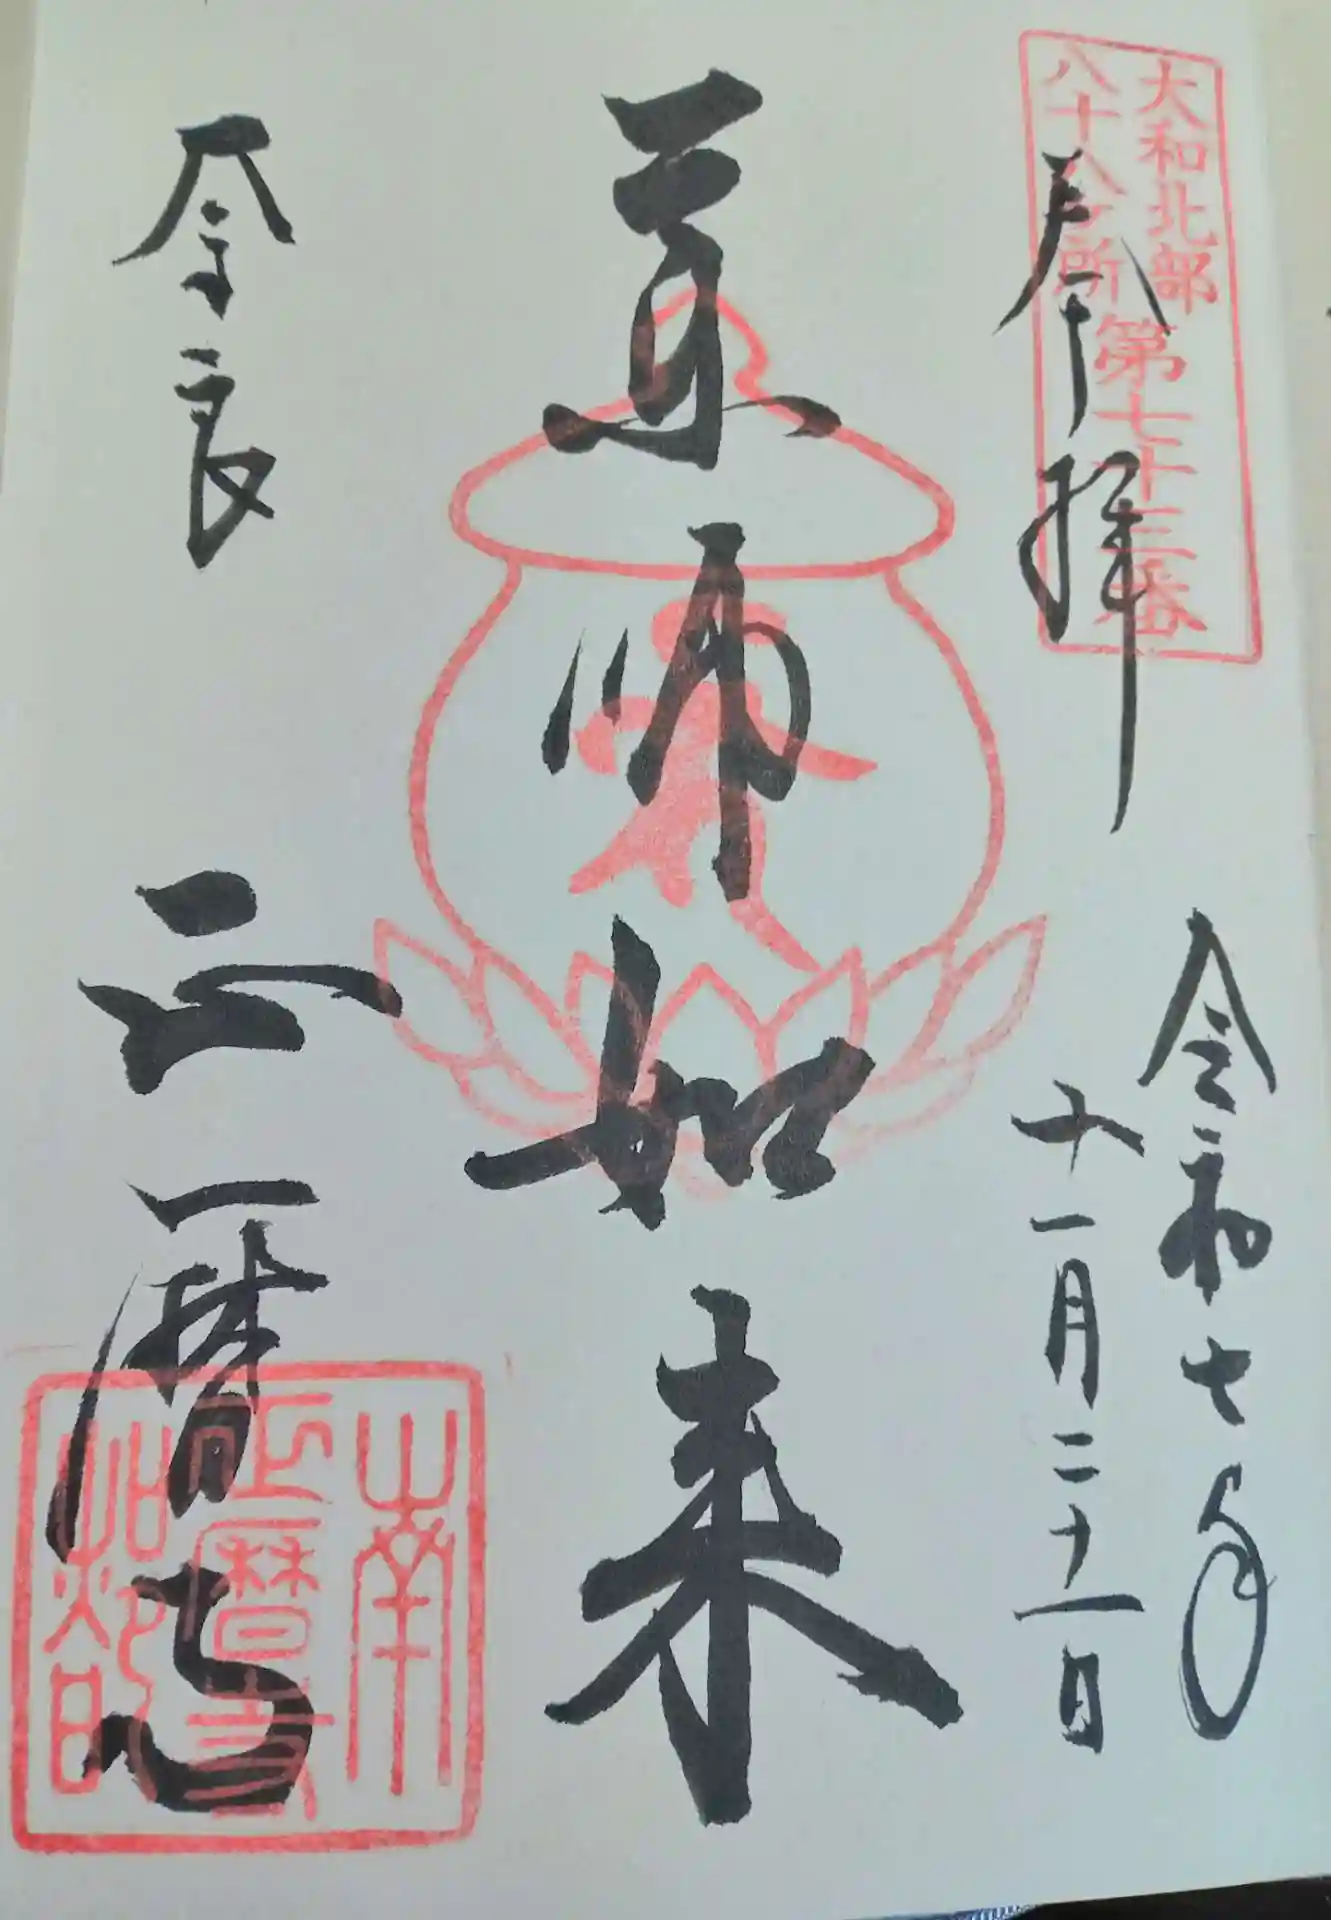 大和北部
八十八ヶ所
第七十三番
奉拝
令和七年
十一月二十一日
薬師如来
奈良
正暦寺
正暦寺